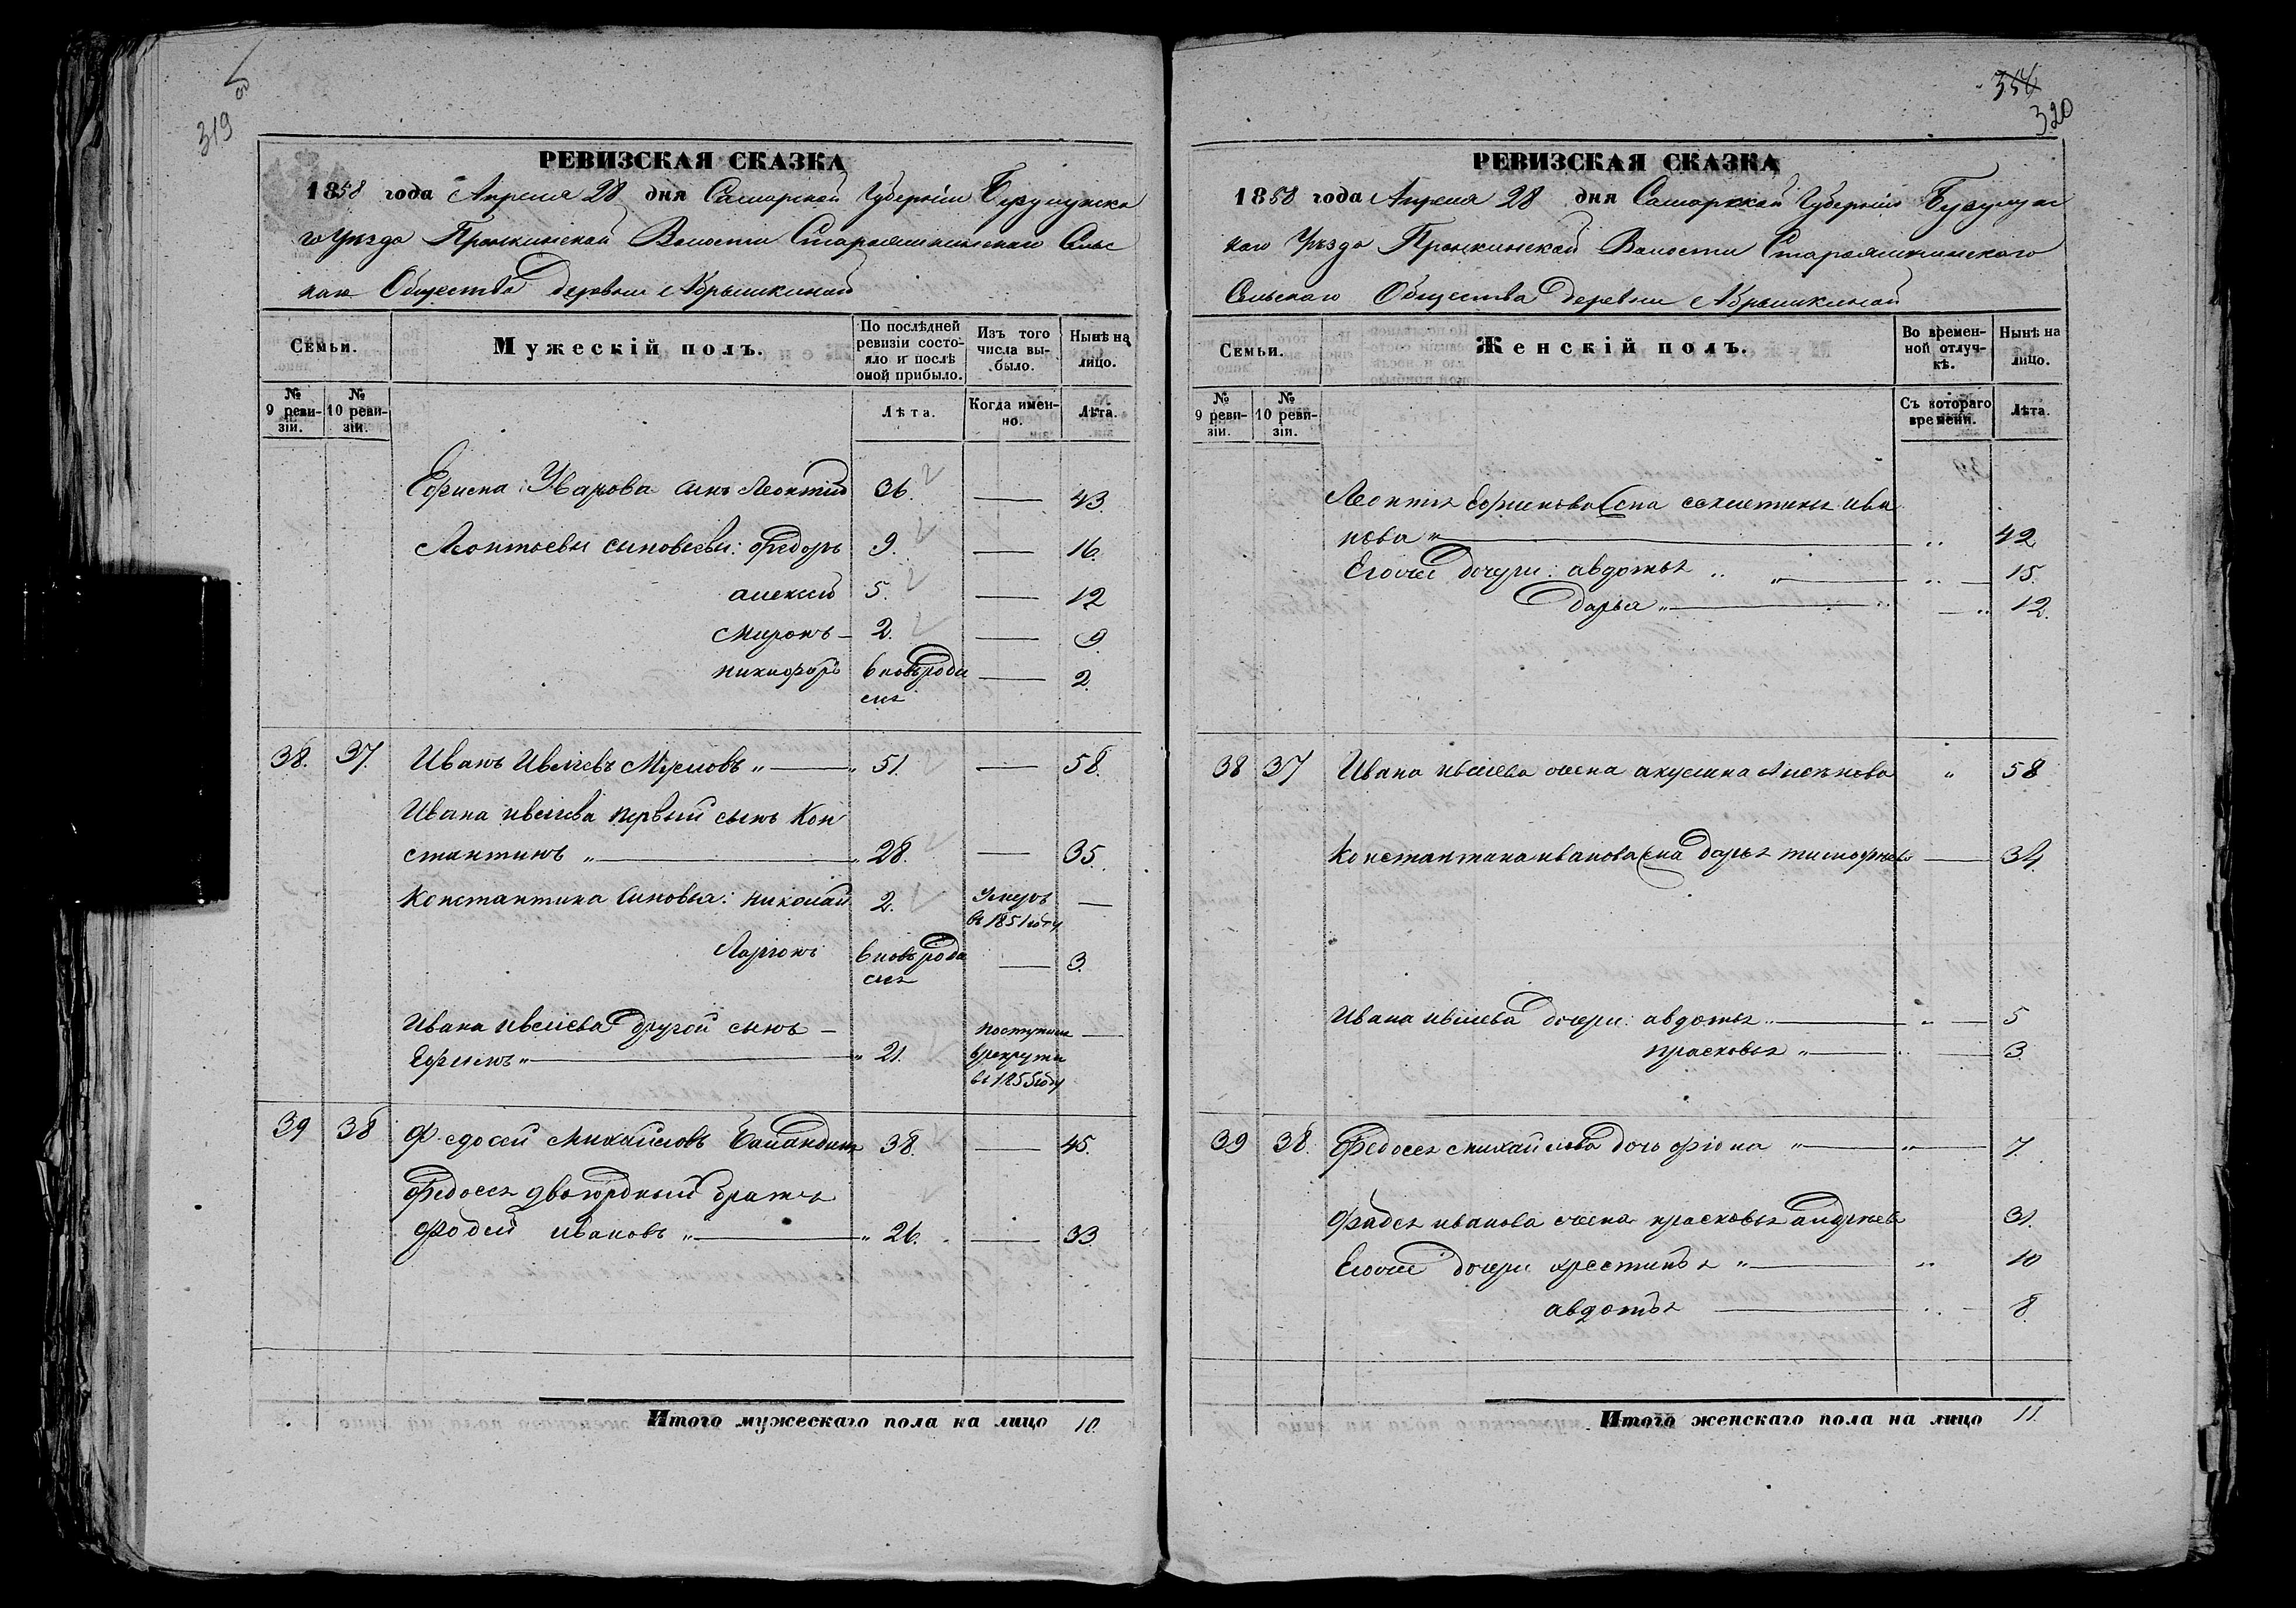 319
РЕВИЗСКАЯ СКАЗКА
1858 года Апреля 28 дня Самарской Губерніи Бузулукска
го Уѣзда Пронкинской Волости Старояшкинскаго Сельс
каго Общества деревни Абрышкиной
Семьи.
Мужескій полъ.
По послѣдней ревизіи состояло и послѣ оной прибыло.
Изъ того числа выбыло.
Нынѣ на лицо.
№ 9 ревизіи.
№ 10 ревизіи.
Лѣта.
Когда именно.
Лѣта.
Ефима Уварова сынъ Леонтій 36. — 43.
Леонтьевы сыновья: Федоръ 9. — 16.
алексей 5. — 12
Миронъ 2. — 9.
никифоръ вновь роди — 2.
лся
38. 37. Иванъ Ивлiевъ Мусловъ „ — „ 51. — 58.
Ивана ивлiева первый сынъ Кон
стантинъ „ — „ 28. — 35.
Константина сыновья: николай 2. Умеръ —
въ 1851 году
Ларіонъ вновь роди — 3.
лся
Ивана ивлiева другой сынъ — поступилъ —
Ефимъ „ — „ 21. в рекруты
въ 1855 году
39 38 Федосей Михайловъ 38. — 45.
Федосея двоюродный братъ
Фадей ивановъ „ — „ 26. — 33.
Итого мужескаго пола на лицо 10.
354
320
РЕВИЗСКАЯ СКАЗКА
1858 года Апреля 28 дня Самарской Губерніи Бузулукс
каго Уѣзда Пронкинской Волости Старояшкинскаго
Сельскаго Общества деревни Абрышкиной
Семьи.
Женскій полъ.
Во временной отлучкѣ.
Нынѣ на лицо.
№ 9 ревизіи.
№ 10 ревизіи.
Съ котораго времени.
Лѣта.
Леонтья Ефимова жена сехлетинья ива
нова „ — „ 42
Егоже дочери: авдотья „ — „ 15.
дарья „ — „ 12.
38 37 Ивана ивлiева жена акулина „ 58
Константина иванова жена дарья тимофѣева — 34.
Ивана ивлiева дочери: авдотья „ — „ 5
прасковья „ — 3.
39 38. Федосея михайлова дочь фіона „ — „ 7.
Фадея иванова жена прасковья андреева 31.
Егоже дочери хрестинья „ — „ 10
авдотья — „ 8.
Итого женскаго пола на лицо 11.